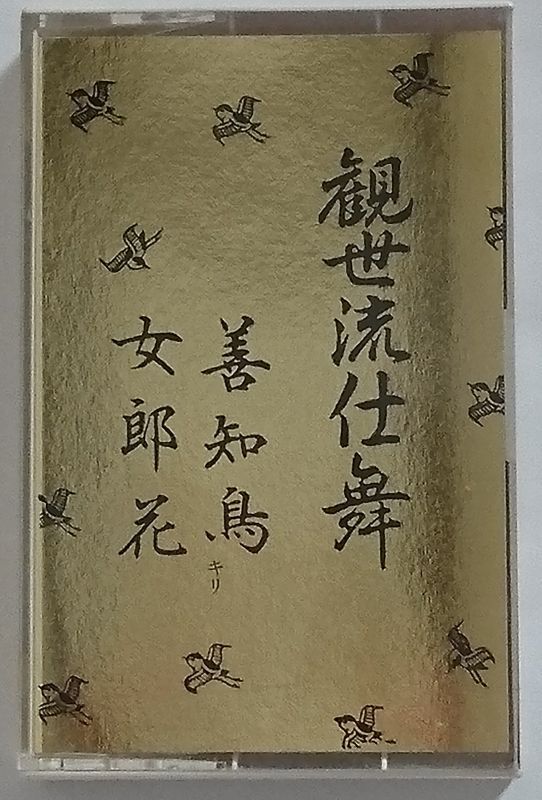 観世流仕舞
善知鳥キリ
女郎花